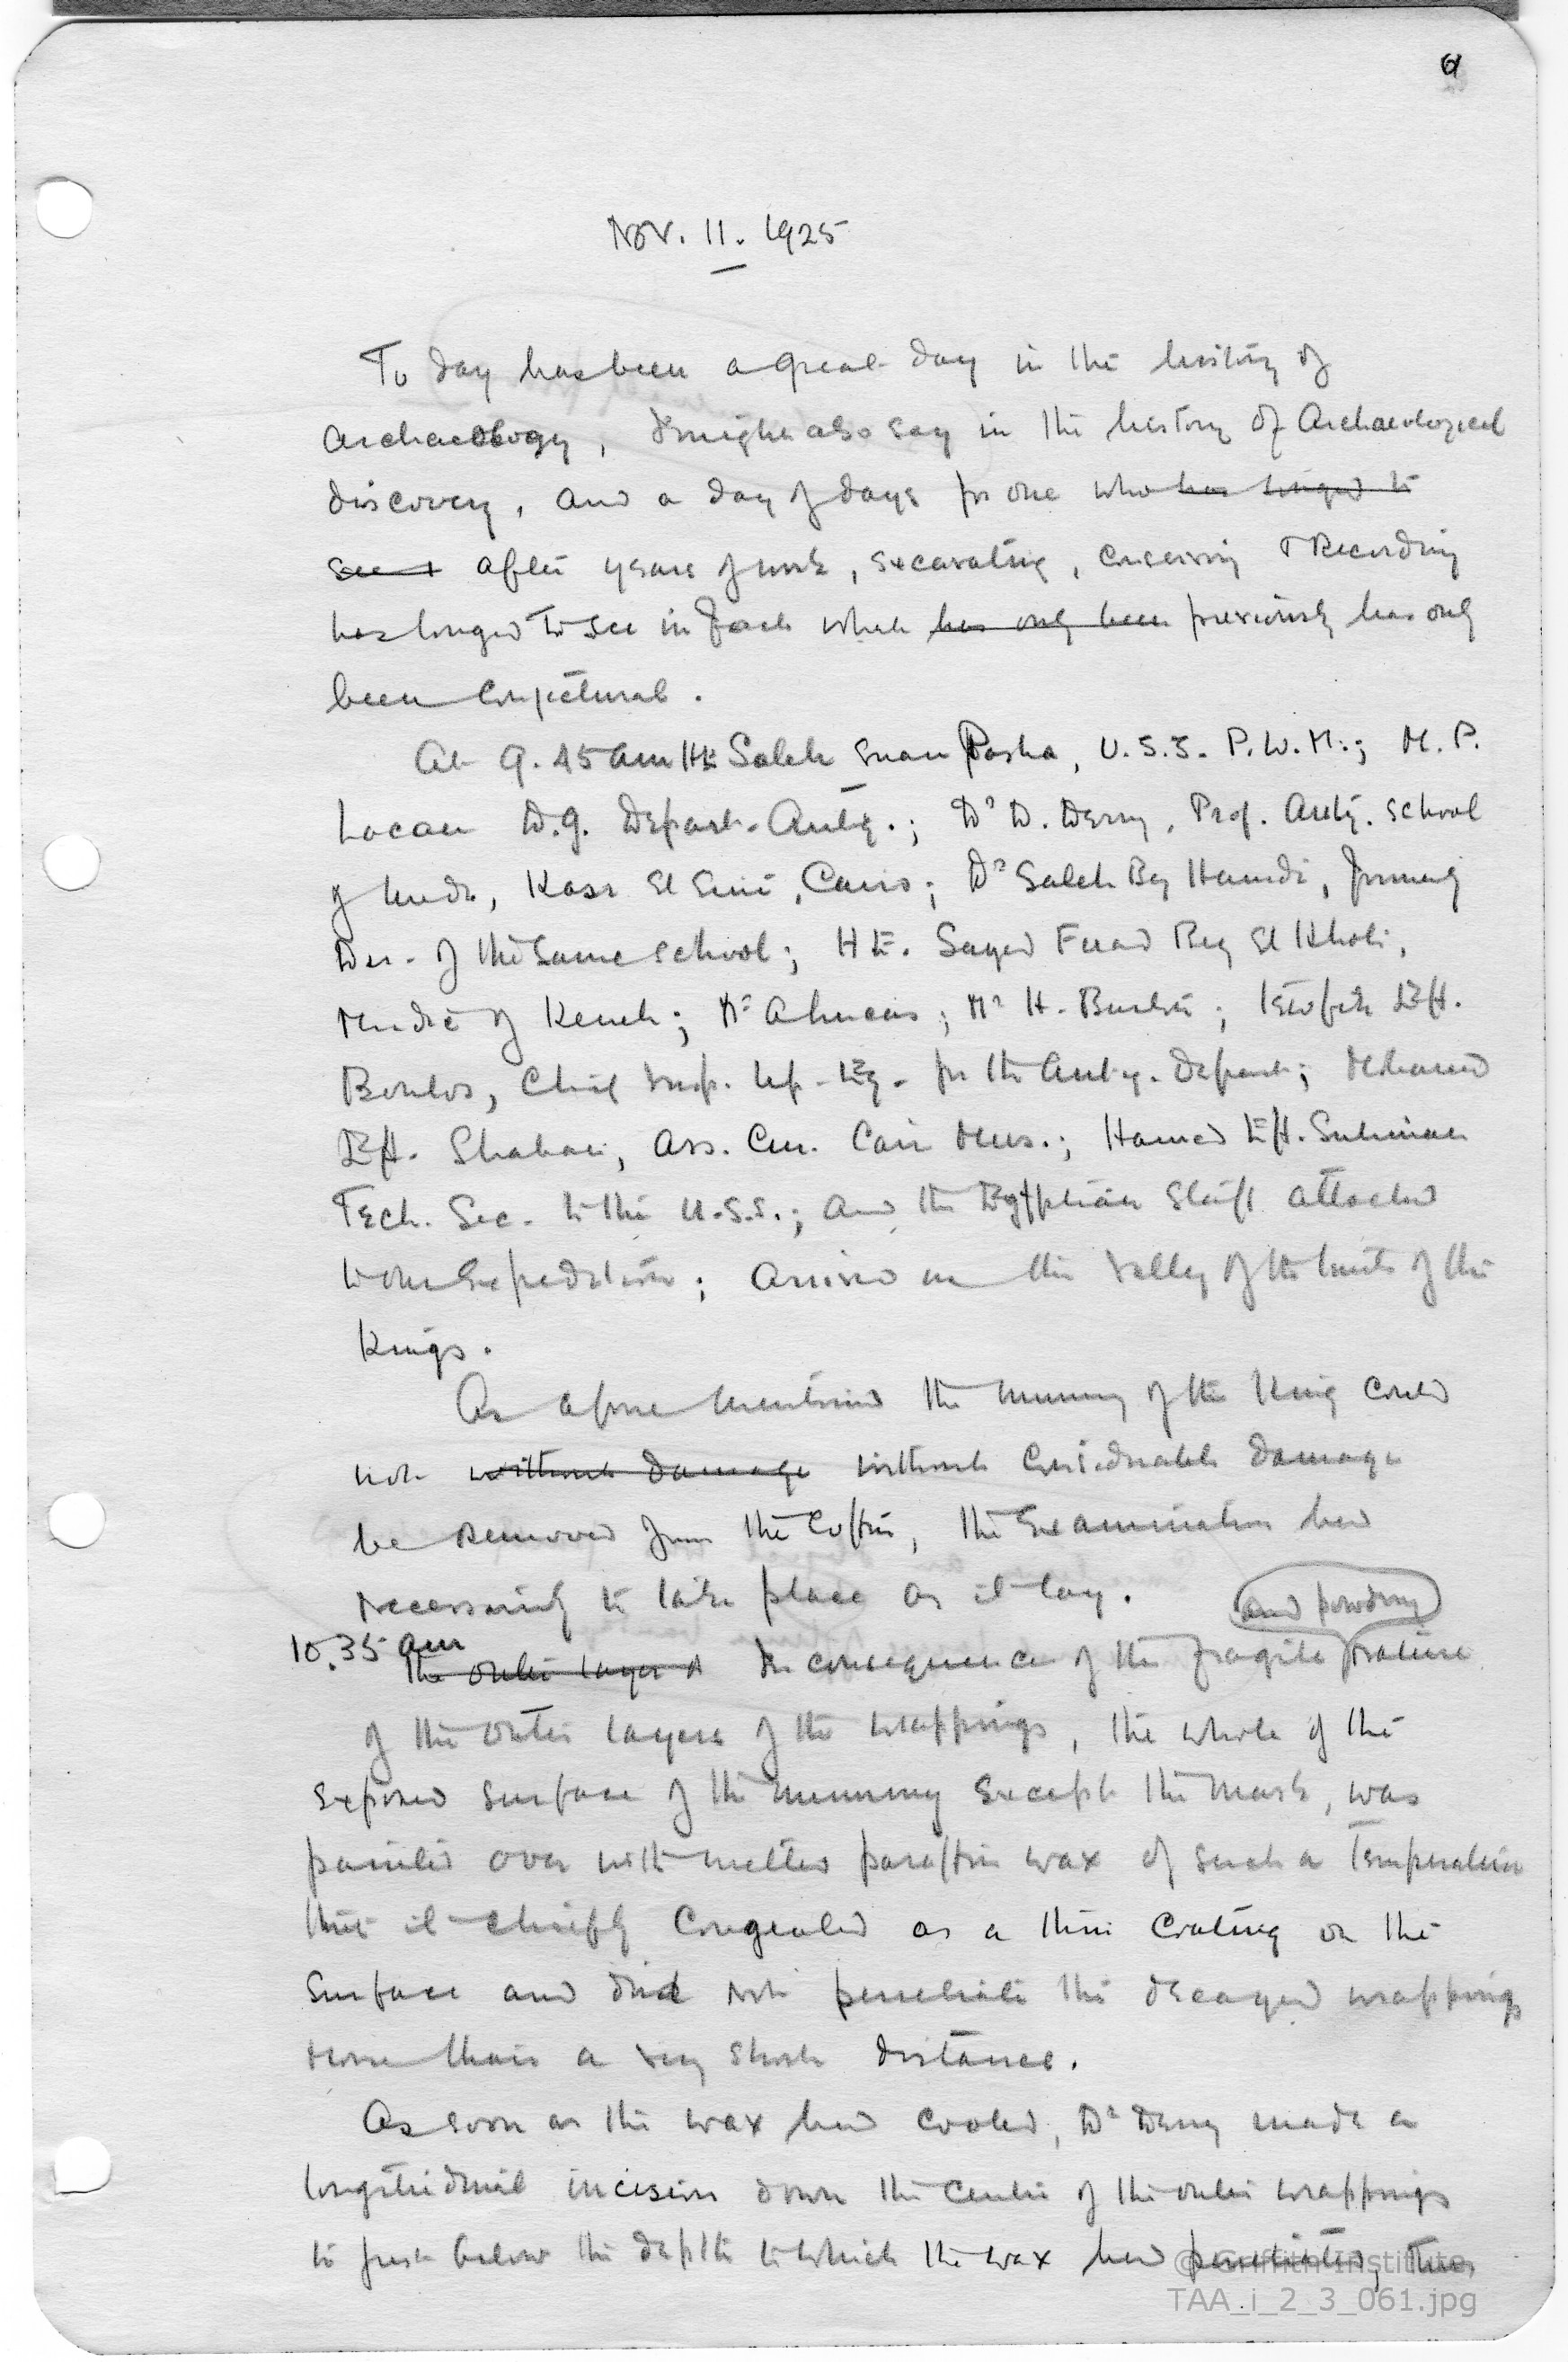 61
Nov. 11. 1925
To day has been a great day in the history of
Archaeology, I might also say in the history of Archaeological
discovery, and a day of days for one who has longed to
see after years of work, excavating, conserving & Recording
has longed to see in fact what has only been previously has only
been conjectural.
At 9.45 am HE Saleh Enan Pasha, U.S.S. P.W.M.; M. P.
Lacau D.G. Depart. Antiq.; Dr D. Derry, Prof. Anty. School
of Medi, Kasr El Aini, Cairo; Dr Saleh Bey Hamdi, formerly
Dir. of the same school; H E. Sayed Fuad Bey El Kholi,
Mudir of Keneh; Mr A Lucas; Mr H. Burton; Tewfik Eff.
Boulos, Chief Insp. Up. Eg. for the Antiq. Depart; Mohamed
Eff. Shaban, Ass. Cur. Cairo Mus.; Hamed Eff. Suliman
Tech. Sec. to the U.S.S.; and the Egyptian Staff attached
to our Expedition; arrived in the Valley of the tombs of the
Kings.
As afore mentioned the mummy of the King could
not without damage without considerable damage
be removed from the coffin, the Examination had
necessarily to take place as it lay.
and powdery
10.35 am
The outer layers In consequence of the fragile nature
of the outer layers of the wrappings, the whole of the
exposed surface of the mummy except the mask, was
painted over with melted paraffin wax of such a Temperature
that it chiefly congealed as a thin coating on the
surface and did not penetrate the decayed wrappings
more than a very short distance.
As soon as the wax had cooled, Dr Derry made a
longitudinal incision down the centre of the outer wrappings
to just below the depth to which the wax had penetrated, thus
© Griffith Institute,
TAA_i_2_3_061.jpg